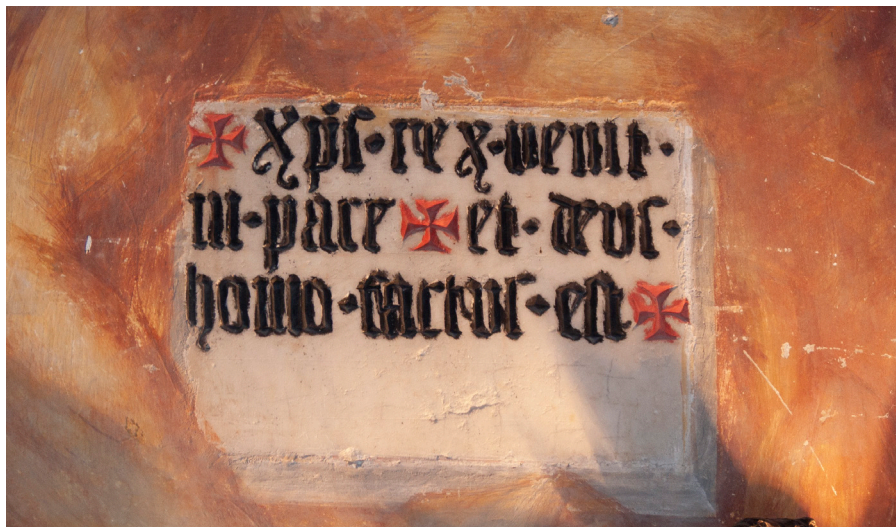 ✠ xps · rex · venit ·
in · pace ✠ et · deus ·
homo · factus · est ✠